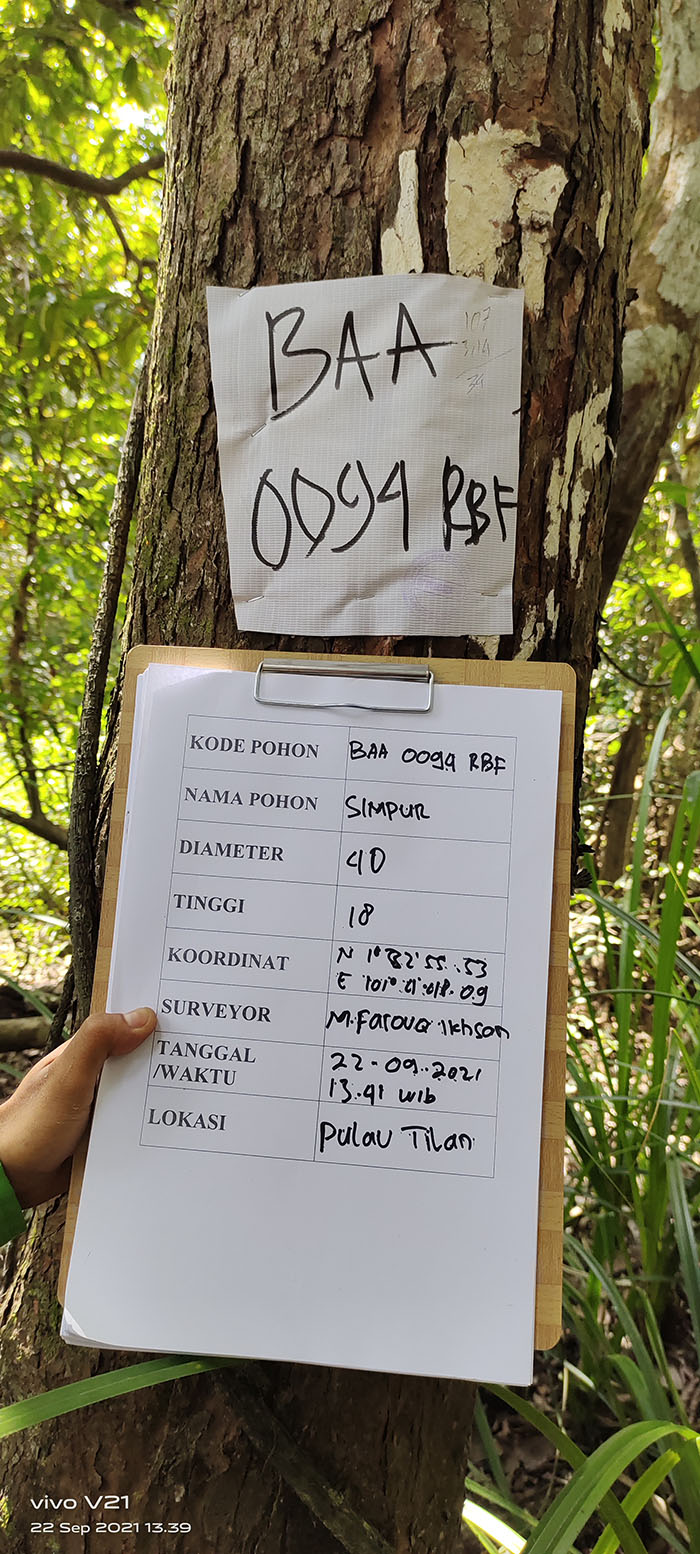 BAA
0094 RBF
KODE POHON BAA 0094 RBF
NAMA POHON SIMPUR
DIAMETER 40
TINGGI 18
KOORDINAT N 1° 82' 55..53
E 101°.01'.018.09
SURVEYOR M.Farouq Ikhson
TANGGAL 22-09-2021
/WAKTU 13.41 WIB
LOKASI Pulau Tilan
vivo V21
22 Sep 2021 13.39